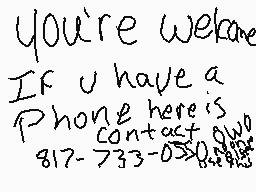 you're welcome
IF u have a
Phone here is
contact
817-733-0550